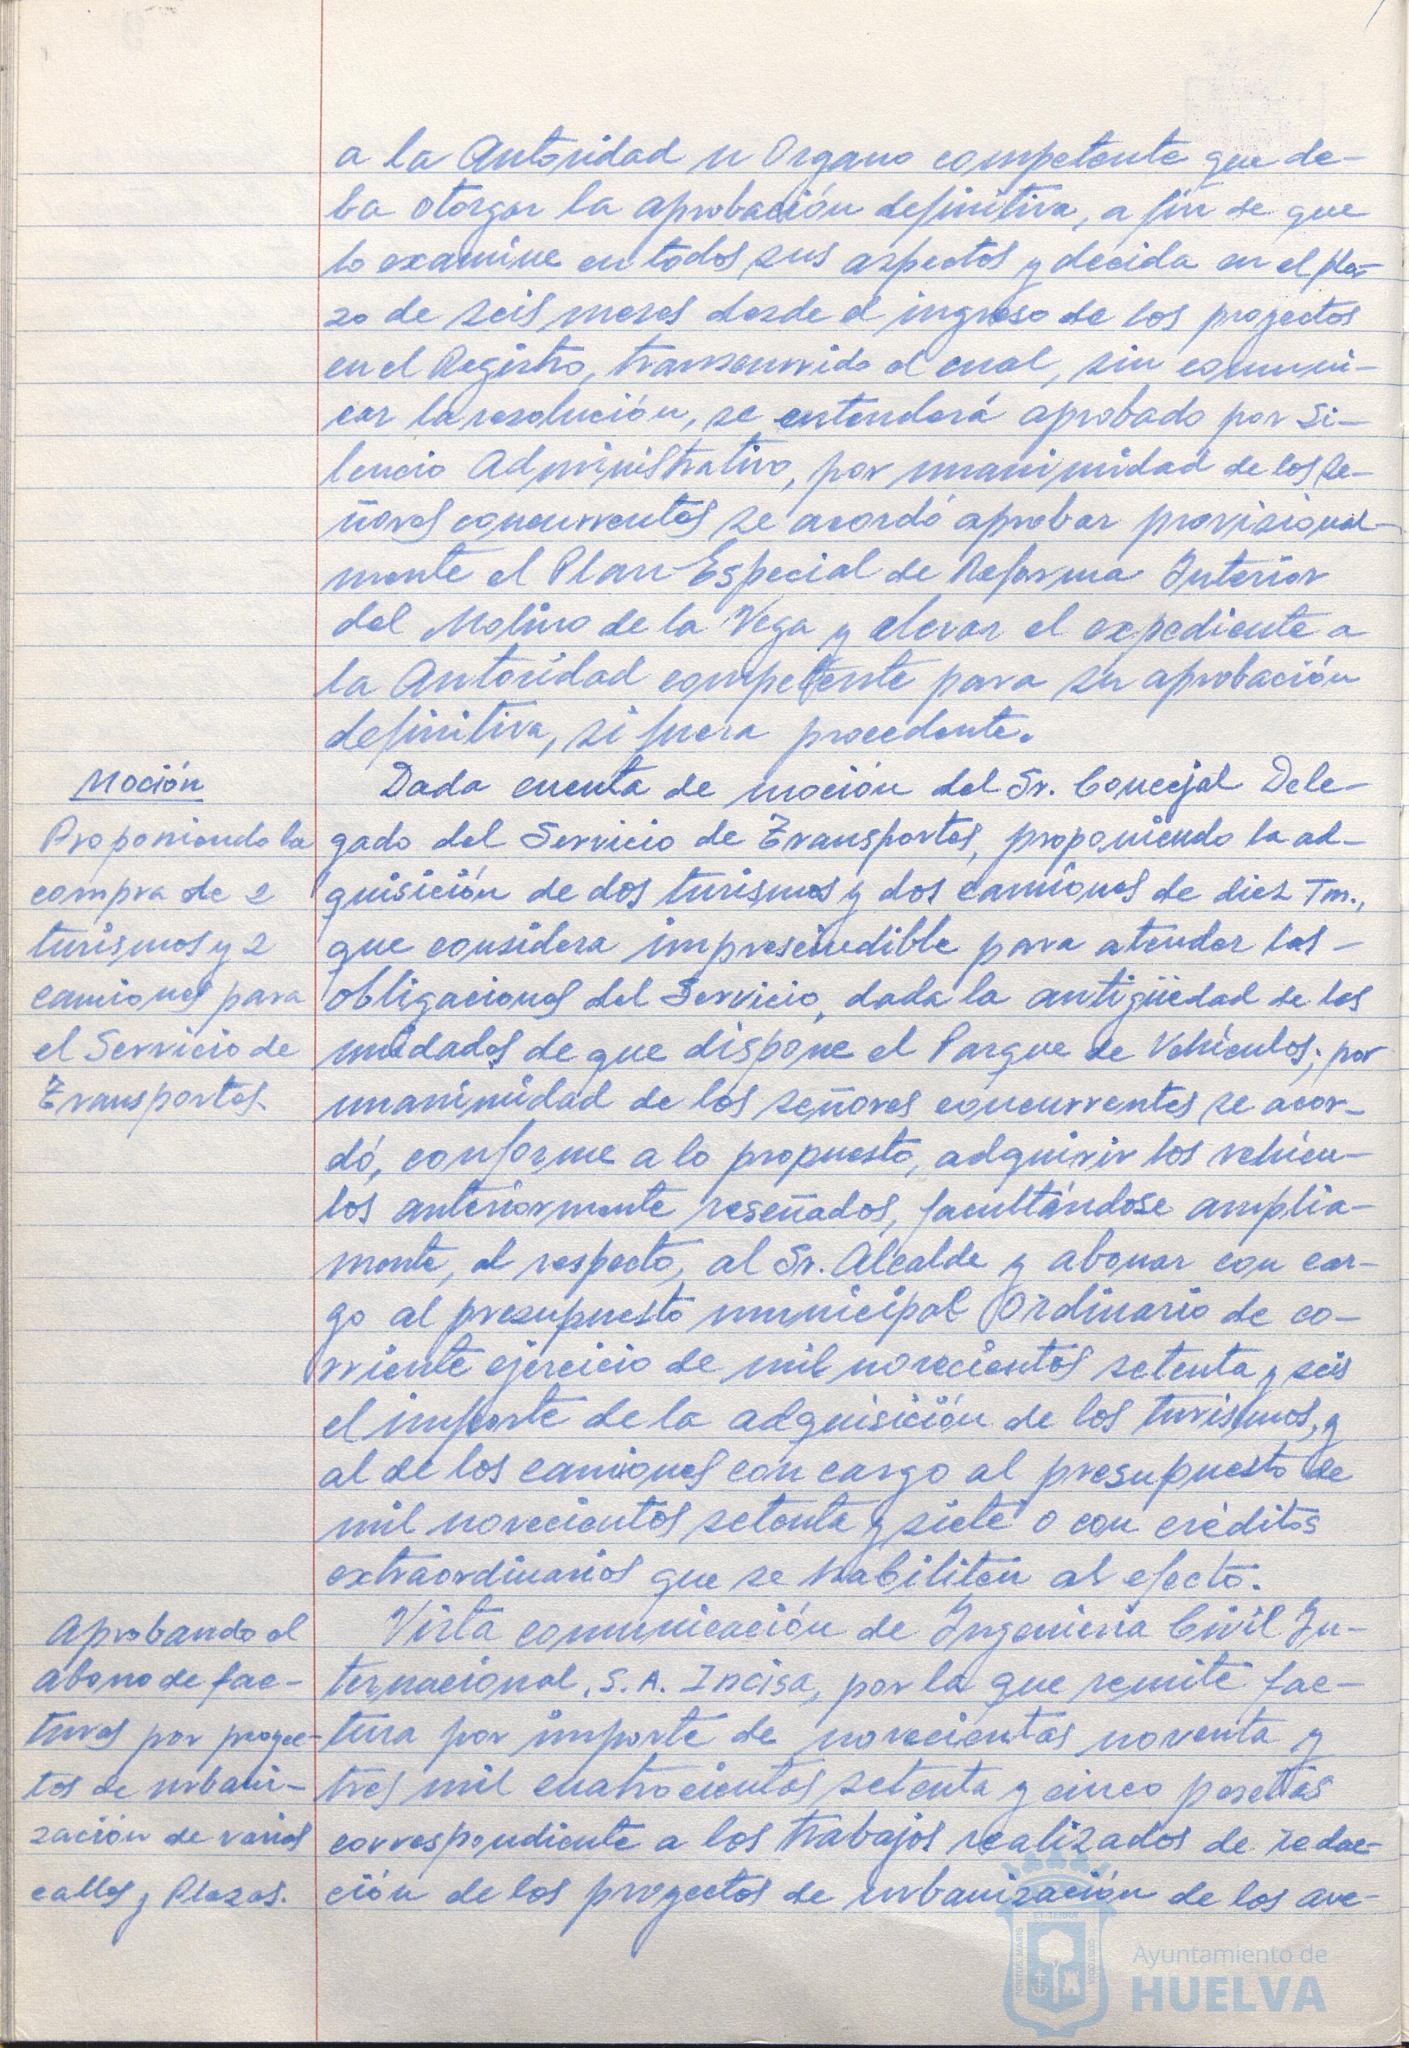 a la Autoridad u Organo competente que de-
ba otorgar la aprobación definitiva, a fin de que
lo examine en todos sus aspectos y decida en el pla-
zo de seis meses desde el ingreso de los proyectos
en el Registro, transcurrido el cual, sin comuni-
car la resolución, se entenderá aprobado por Si-
lencio Administrativo, por unanimidad de los se-
ñores concurrentes se acordó aprobar provisional-
mente el Plan Especial de Reforma Interior
del Molino de la Vega y elevar el expediente a
la Autoridad competente para su aprobación
definitiva, si fuera procedente.
Moción
Proponiendo la
compra de 2
turismos y 2
camiones para
el Servicio de
Transportes.
Dada cuenta de moción del Sr. Concejal Dele-
gado del Servicio de Transportes, proponiendo la ad-
quisición de dos turismos y dos camiones de diez Tm.,
que considera imprescindible para atender las
obligaciones del Servicio, dada la antigüedad de las
unidades de que dispone el Parque de Vehículos; por
unanimidad de los señores concurrentes se acor-
dó, conforme a lo propuesto, adquirir los vehícu-
los anteriormente reseñados, facultándose amplia-
mente, al respecto, al Sr. Alcalde y abonar con car-
go al presupuesto municipal Ordinario de co-
rriente ejercicio de mil novecientos setenta y seis
el importe de la adquisición de los turismos, y
al de los camiones con cargo al presupuesto de
mil novecientos setenta y siete o con créditos
extraordinarios que se habiliten al efecto.
Aprobando el
abono de fac-
turas por proyec-
tos de urbani-
zación de varias
calles y Plazas.
Vista comunicación de Ingeniería Civil In-
ternacional, S.A. Incisa, por la que remite fac-
tura por importe de novecientas noventa y
tres mil cuatrocientas setenta y cinco pesetas
correspondiente a los trabajos realizados de redac-
ción de los proyectos de urbanización de los ave-
Ayuntamiento de
HUELVA